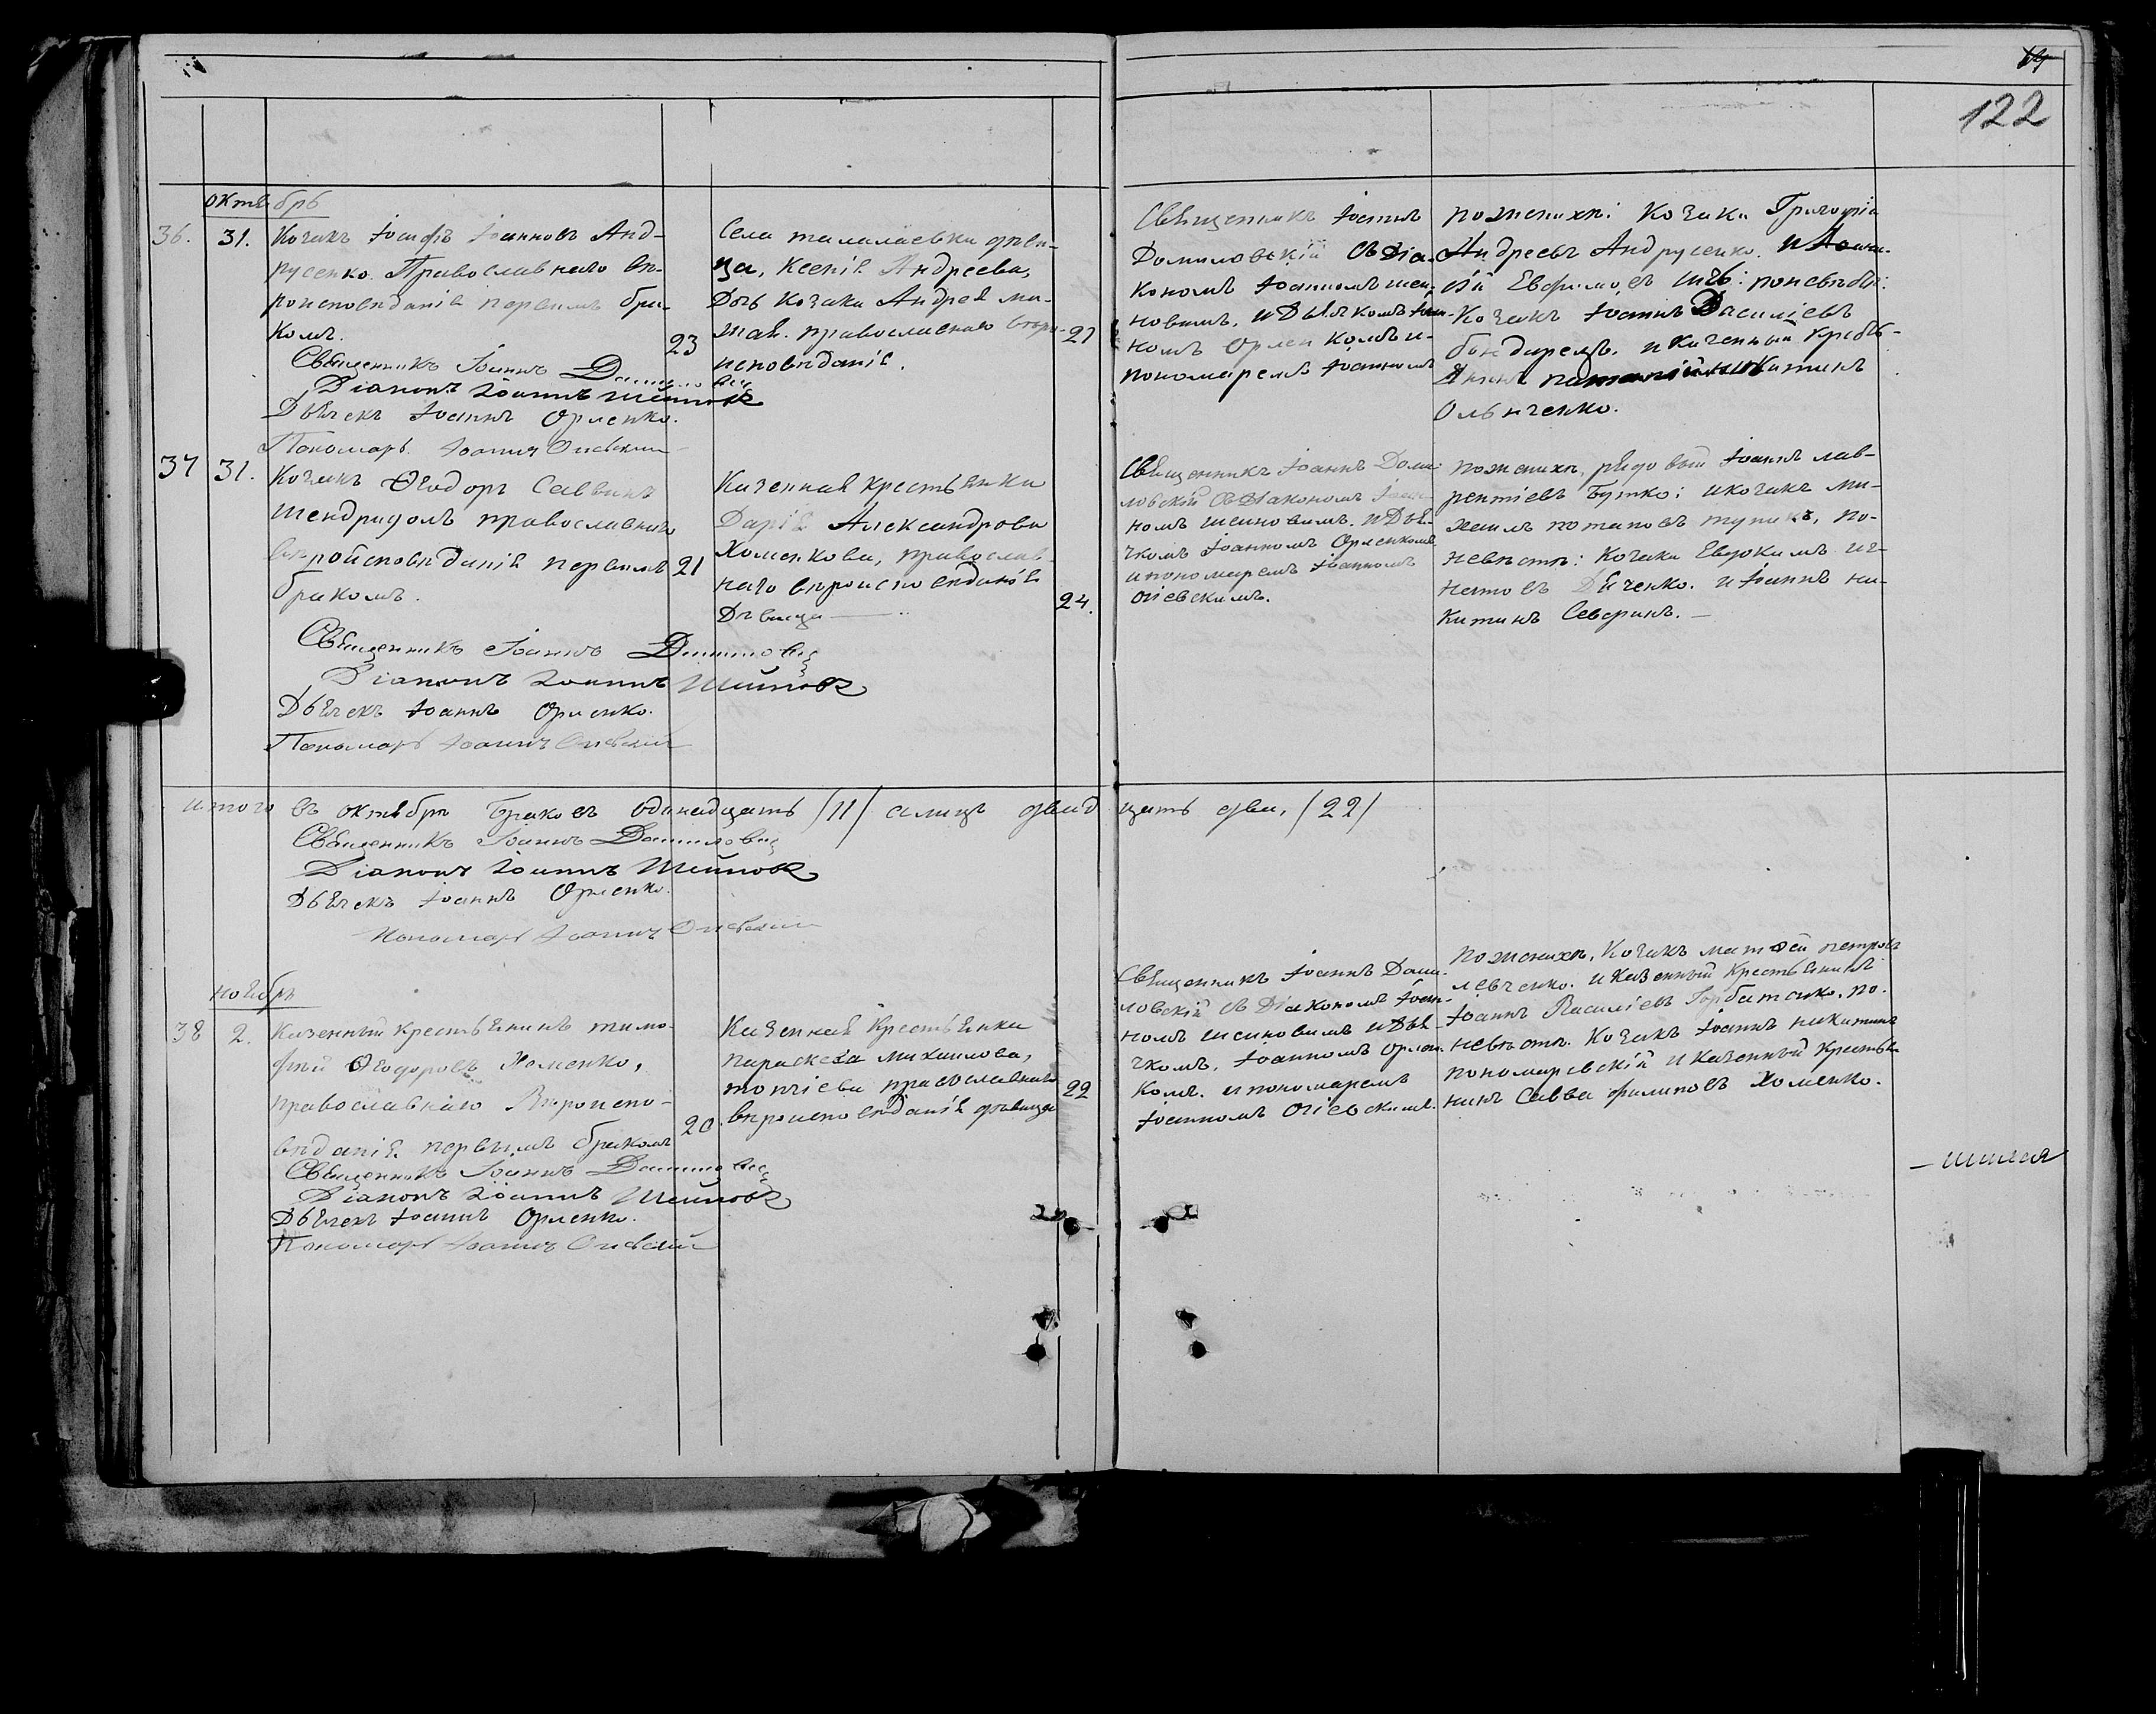 14
122
октябрь
36. 31. Козакъ Іосифъ Іоанновъ Анд-
русенко. Православнаго вѣ-
роисповѣданія первымъ бра-
комъ.
23
Священникъ Іоаннъ
Діаконъ Іоаннъ Шеиновъ
Дьячекъ Іоаннъ Орленко.
Пономарь Іоаннъ Огіевскій
Села талалаевки дѣви-
ца, Ксенія Андреева,
Дочь козака Андрея
православнаго вѣро-
исповѣданія.
21
Священникъ Іоаннъ
Домиловскій съ діа-
кономъ Іоанномъ Шеи-
новымъ, и Дьячкомъ Іоан-
номъ Орленкомъ и
пономаремъ Іоанномъ
по женихѣ: козаки Григорій
Андреевъ Андрусенко. и
Евфимовъ по невѣстѣ:
Козакъ Іоаннъ Василіевъ
бондарець, и казенный крестья-
нинъ Никитинъ
Ольнченко.
37 31. Козакъ Ѳеодоръ Саввинъ
Шендридомъ православнаго
вѣроисповѣданія первымъ
бракомъ.
21
Священникъ Іоаннъ Домиловскій
Діаконъ Іоаннъ Шеиновъ
Дьячекъ Іоаннъ Орленко.
Пономарь Іоаннъ Огіевскій
Казенная крестьянка
Дарія Александрова
Хоменкова, православ-
наго вѣроисповѣданія
Дѣвица
24.
Священникъ Іоаннъ Доми-
ловскій съ Діакономъ Іоан-
номъ Шеиновымъ. и Дья-
чкомъ Іоанномъ Орленкомъ
и пономаремъ Іоанномъ
Огіевскимъ.
по женихѣ, рядовый Іоаннъ лав-
рентіевъ Бутко; и козакъ ми-
хаилъ потаповъ тупикъ, по-
невѣстѣ: козаки Евдокимъ иг-
натовъ Дяченко. и Іоаннъ ни-
китинъ Северинъ.
итого въ октябрѣ браковъ одинадцать /11/ а лицъ двадцать два, /22/
Священникъ Іоаннъ Домиловскій
Діаконъ Іоаннъ Шеиновъ
Дьячекъ Іоаннъ Орленко.
Пономарь Іоаннъ Огіевскій
ноябрь
38 2. Казенный крестьянинъ тимо-
фей Ѳеодоровъ Хоменко,
православнаго вѣроиспо-
вѣданія первымъ бракомъ
20.
Священникъ Іоаннъ Домиловскій
Діаконъ Іоаннъ Шеиновъ
Дьячекъ Іоаннъ Орленко.
Пономарь Іоаннъ Огіевскій
Казенная крестьянка
параскева михаилова,
топчіева православнаго
вѣроисповѣданія дѣвица
22
Священникъ Іоаннъ Доми-
ловскій съ Діакономъ Іоан-
номъ Шеиновымъ и Дья-
чкомъ, Іоанномъ Орлен-
комъ. и пономаремъ
Іоанномъ Огіевскимъ.
по женихѣ, козакъ матѳей петровъ
левченко. и казенный крестьянинъ
Іоаннъ Василіевъ Горбатенко, по-
невѣстѣ. козакъ Іоаннъ никитинъ
пономаревскій и казенный крестья-
нинъ Савва филиповъ Хоменко.